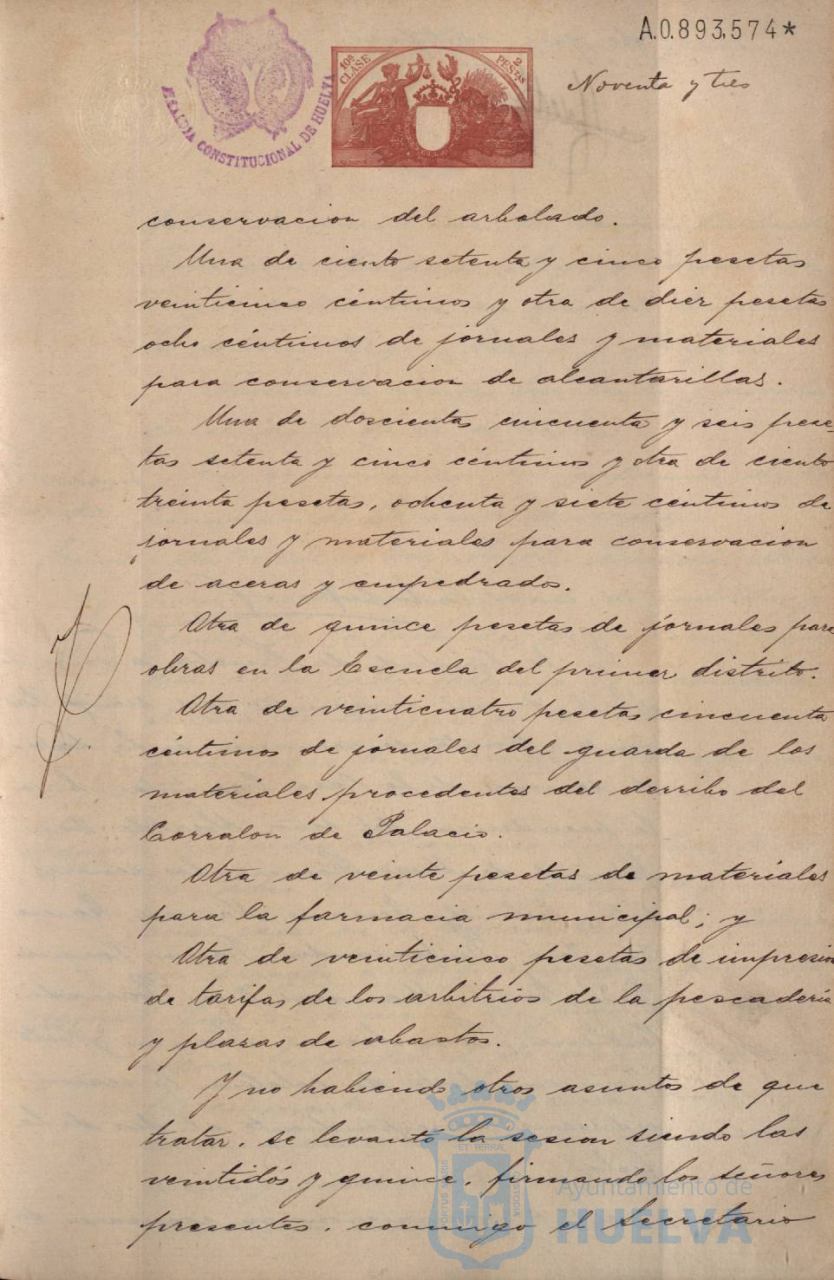 A.0.893,574*
ALCALDIA CONSTITUCIONAL DE HUELVA
10ª CLASE
2 PESTAS
Noventa y tres
conservacion del arbolado.
Una de ciento setenta y cinco pesetas
veinticinco céntimos y otra de diez pesetas
ocho céntimos de jornales y materiales
para conservacion de alcantarillas.
Una de doscientas cincuenta y seis pese-
tas setenta y cinco céntimos y otra de ciento
treinta pesetas, ochenta y siete céntimos de
jornales y materiales para conservacion
de aceras y empedrados.
Otra de quince pesetas de jornales para
obras en la Escuela del primer distrito.
Otra de veinticuatro pesetas cincuenta
céntimos de jornales del guarda de los
materiales procedentes del derribo del
Corralon de Palacio.
Otra de veinte pesetas de materiales
para la farmacia municipal; y
Otra de veinticinco pesetas de impresion
de tarifas de los arbitrios de la pescadería
y plazas de abastos.
Y no habiendo otros asuntos de que
tratar, se levantó la sesion siendo las
veintidós y quince, firmando los señores
presentes, conmigo el Secretario
Ayuntamiento de
HUELVA